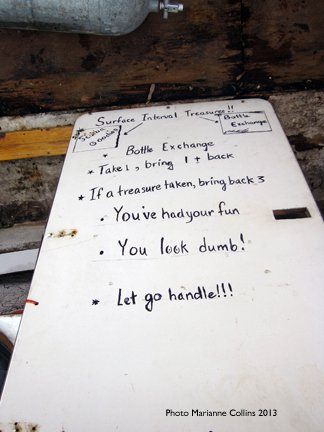 Surface Interval Treasures!!
Goodies
Bottle Exchange
* Bottle Exchange
* Take 1, bring 1+ back
* If a treasure taken, bring back 3
• You've had your fun
• You look dumb!
* Let go handle!!!
Photo Marianne Collins 2013